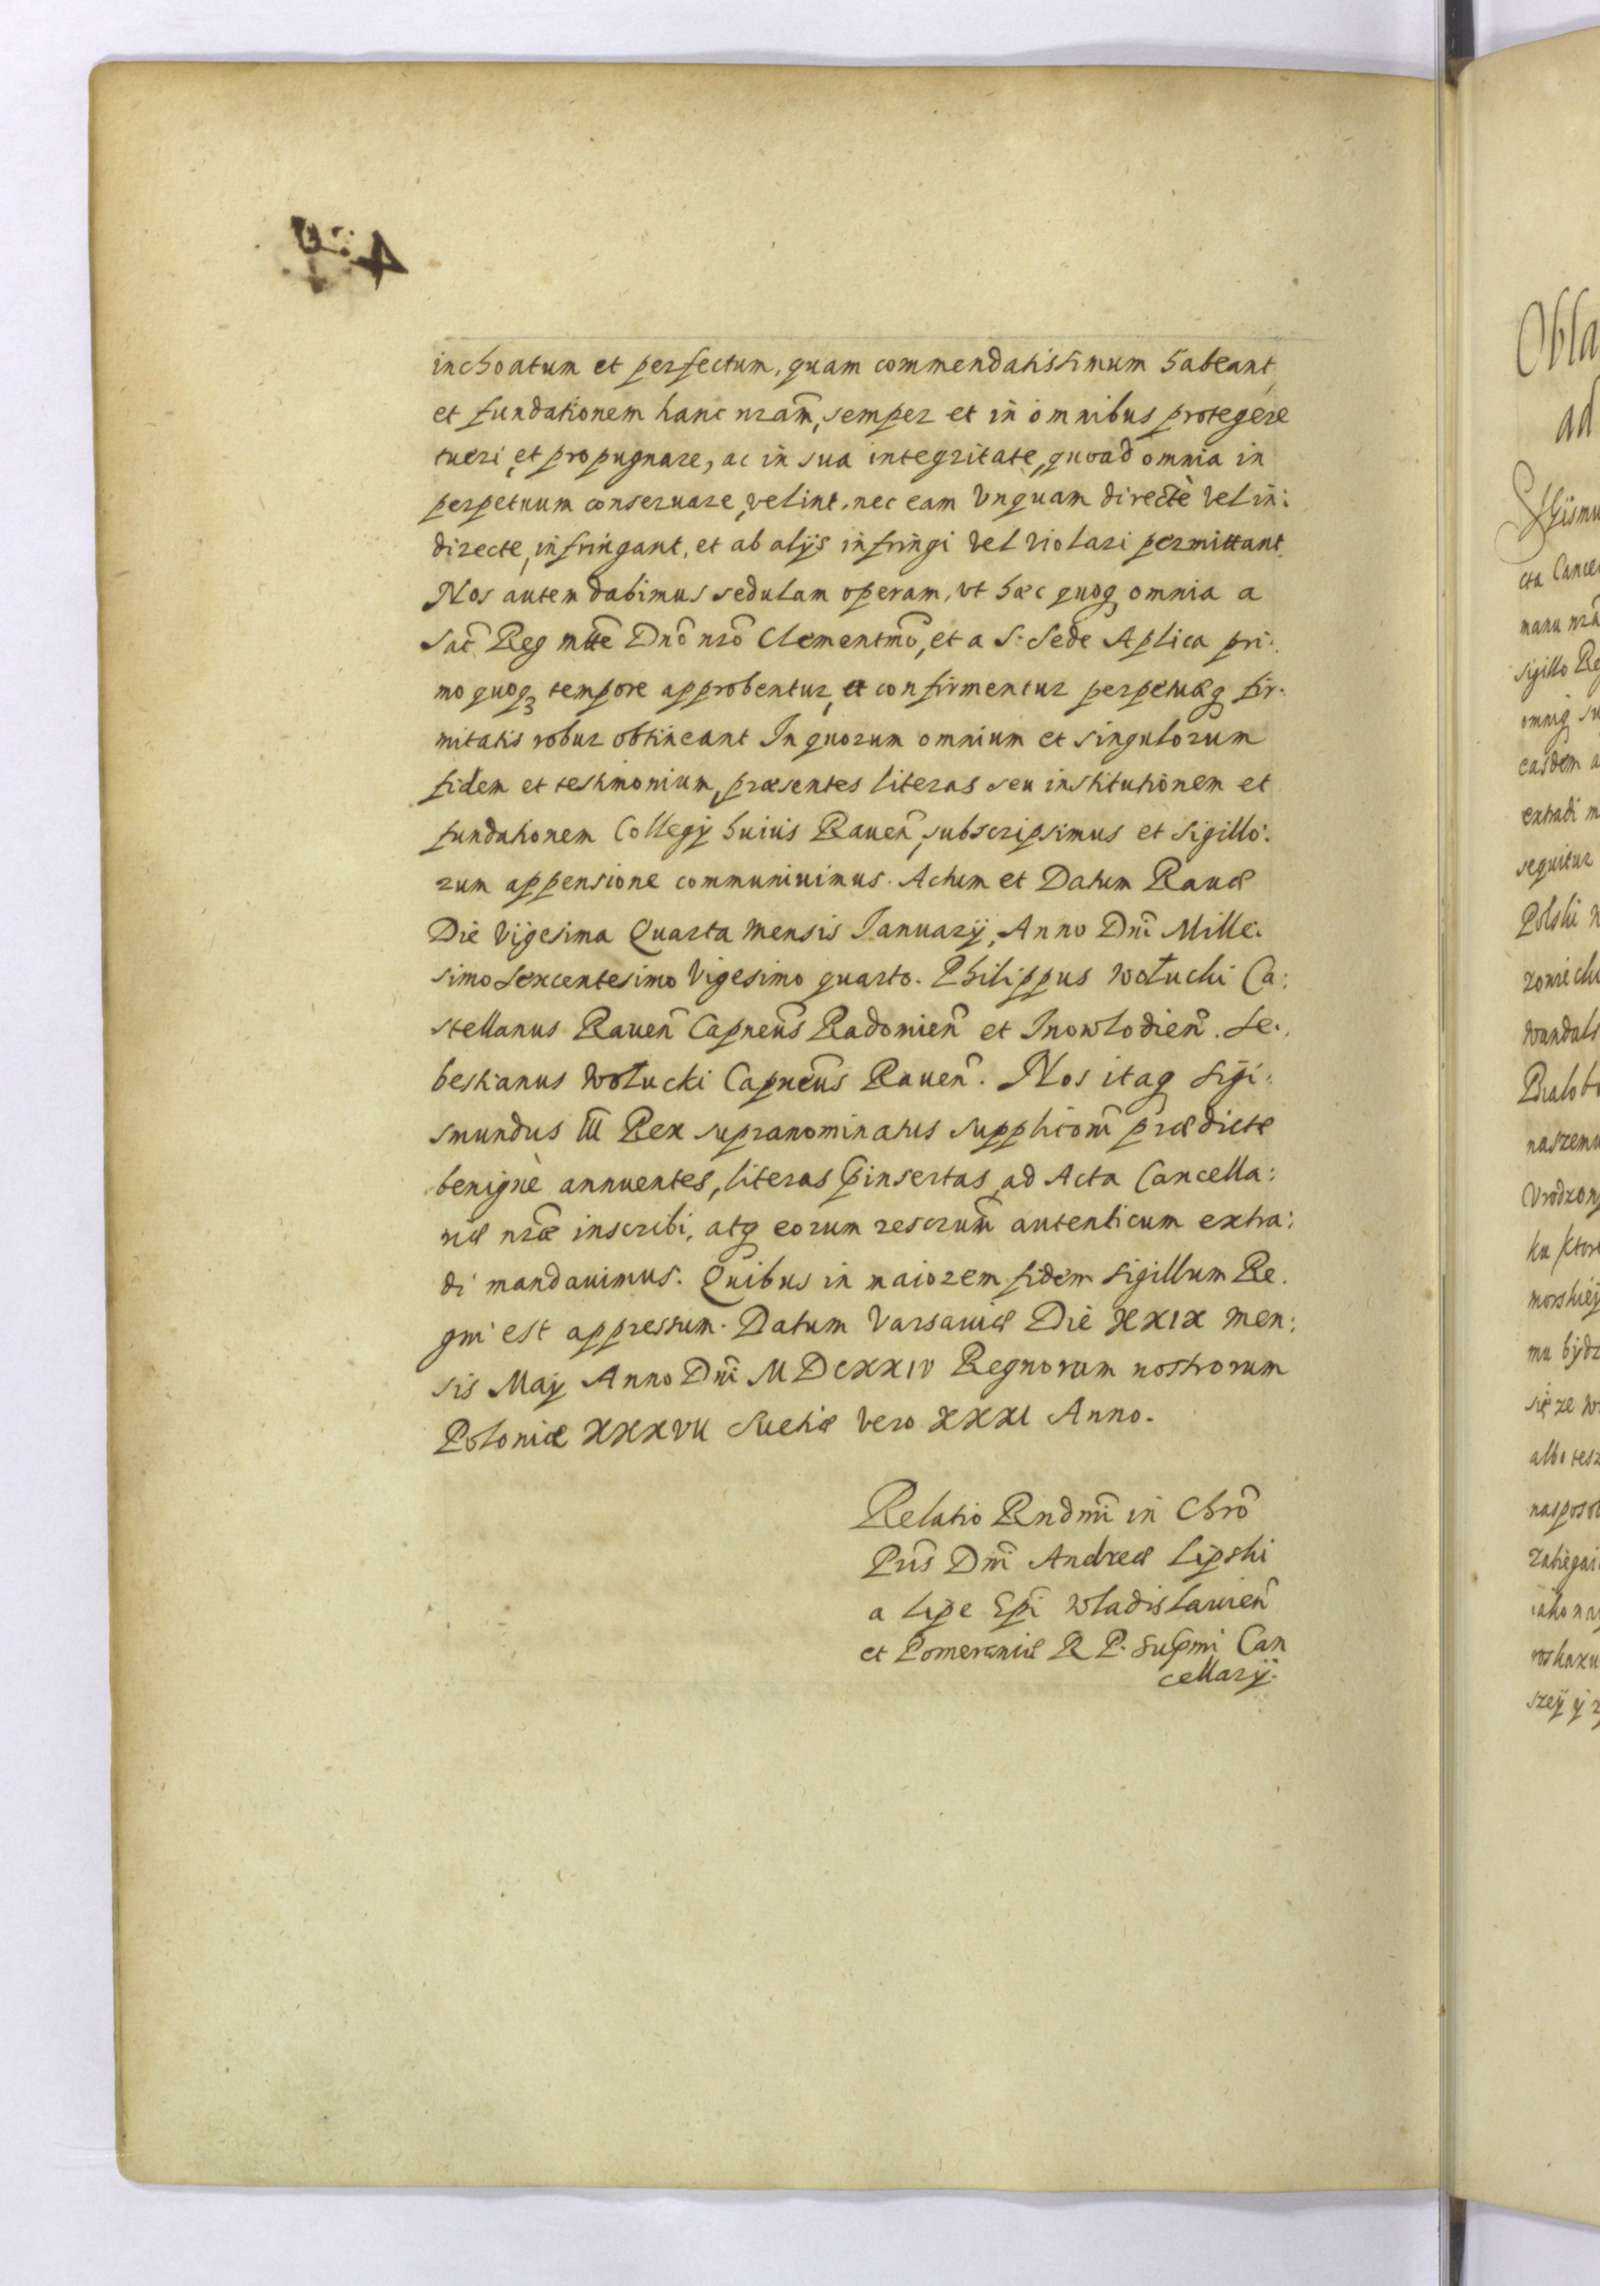 inchoatum et perfectum, quam commendatissimum habeant,
et fundationem hanc nram̃, semper et in omnibus protegere
tueri, et propugnare, ac in sua integritate, quoad omnia in
perpetuum conseruare, velint, nec eam Vnquam directè Vel in:
directe, infringant, et ab alijs infringi Vel violari permittant
Nos autem dabimus sedulam operam, vt hæc quoq omnia a
Sac̃ Reg mtt̃e Dnõ nrõ Clementmõ, et a S: Sede Aplica pri:
mo quoq tempore approbentur, et confirmentur perpetuæq fir:
mitatis robur obtineant In quorum omnium et singulorum
fidem et testimonium, præsentes literas seu institutionem et
fundationem Collegij huius Raueñ, subscripsimus et Sigillo:
rum appensione communiuimus. Actum et Datum Rauæ
Die Vigesima Quarta Mensis Ianuarij, Anno Dnĩ Mille:
simo Sexcentesimo Vigesimo quarto. Philippus Wołuchi Ca:
stellanus Raueñ Capneũs Radomieñ et Inowlodieñ. Se:
bestianus Wołucki Capneũs Raueñ. Nos itaq Sigi:
smundus III Rex supranominatus supplicõni prædictæ
benignè annuentes, literas p̃insertas, ad Acta Cancella:
riæ nr̃æ inscribi, atq eorum rescrum̃ autenticum extra:
di mandauimus. Quibus in maiorem fidem Sigillum Re:
gni est appressum. Datum Varsauiæ Die XXIX Men:
sis Maij Anno Dnĩ MDCXXIV Regnorum nostrorum
Poloniæ XXXVII Suetiæ Vero XXXI Anno.
Relatio Rndmĩ in Chrõ
Prĩs Dnĩ Andreæ Lipshi
a Lipe Epĩ Wladislauieñ
et Pomeraniæ R P. Sup̃mi Can
cellarij.
Obla
ad
cta Cance
manu nrã
sigillo Re
omniq su
easdem a
extradi m
sequitur
Polski
wandals
naszemu
Vrodzony
mu bydz
się ze w
albo tesz